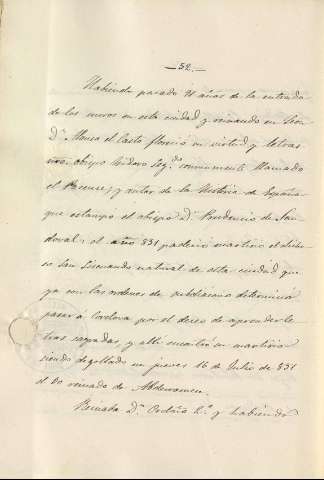 —52.—
Habiendo pasado 98 años de la entrada
de los moros en esta ciudad y reinando en Leon
D.n Alonso el Casto floreció en virtud y letras
obispo Isidoro comunmente llamado
el Pacense, y autor de la Historia de España
que estampó el obispo D.n Prudencio de San-
doval; el año 851 padeció martirio el diáco-
no San Sisenando natural de esta ciudad que
ya con las ordenes de subdiácono determinó
pasar á Cordova por el deseo de aprender le-
tras sagradas, y alli encontró un martirio
siendo degollado un jueves 16 de Julio de 851
el 30 reinado de Abderramen.
Reinaba D.n Ordoño 2.º y habiendo